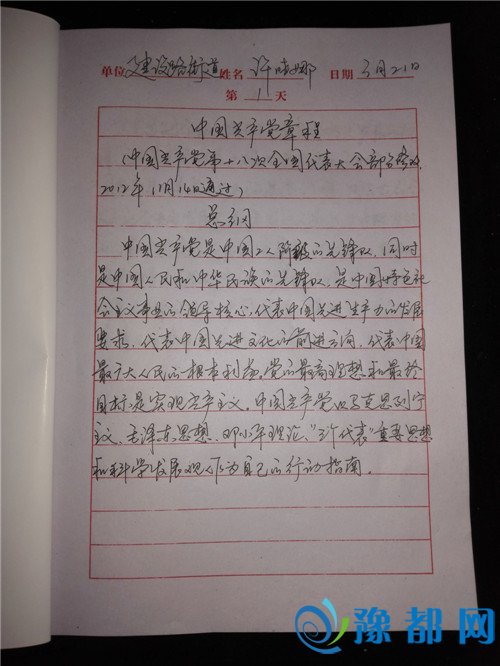 单位 建设路街道 姓名 许晓娜 日期 3月21日
第 1 天
中国共产党章程
(中国共产党第十八次全国代表大会部分修改,
2012年11月14日通过)
总纲
中国共产党是中国工人阶级的先锋队,同时
是中国人民和中华民族的先锋队,是中国特色社
会主义事业的领导核心,代表中国先进生产力的发展
要求,代表中国先进文化的前进方向,代表中国
最广大人民的根本利益。党的最高理想和最终
目标是实现共产主义。中国共产党以马克思列宁
主义、毛泽东思想、邓小平理论、“三个代表”重要思想
和科学发展观作为自己的行动指南。
豫都网